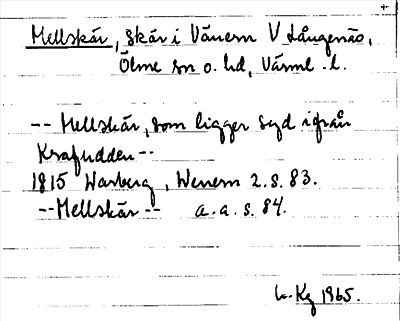 Mellskär, skär i Vänern V Långenäs,
Ölme sn o. hd, Värml. l.
-- Mellskär, som ligger syd ifrån
Krafudden --
1815 Warberg, Wenern 2. s. 83.
-- Mellskär -- a. a. s. 84.
Kg 1965.